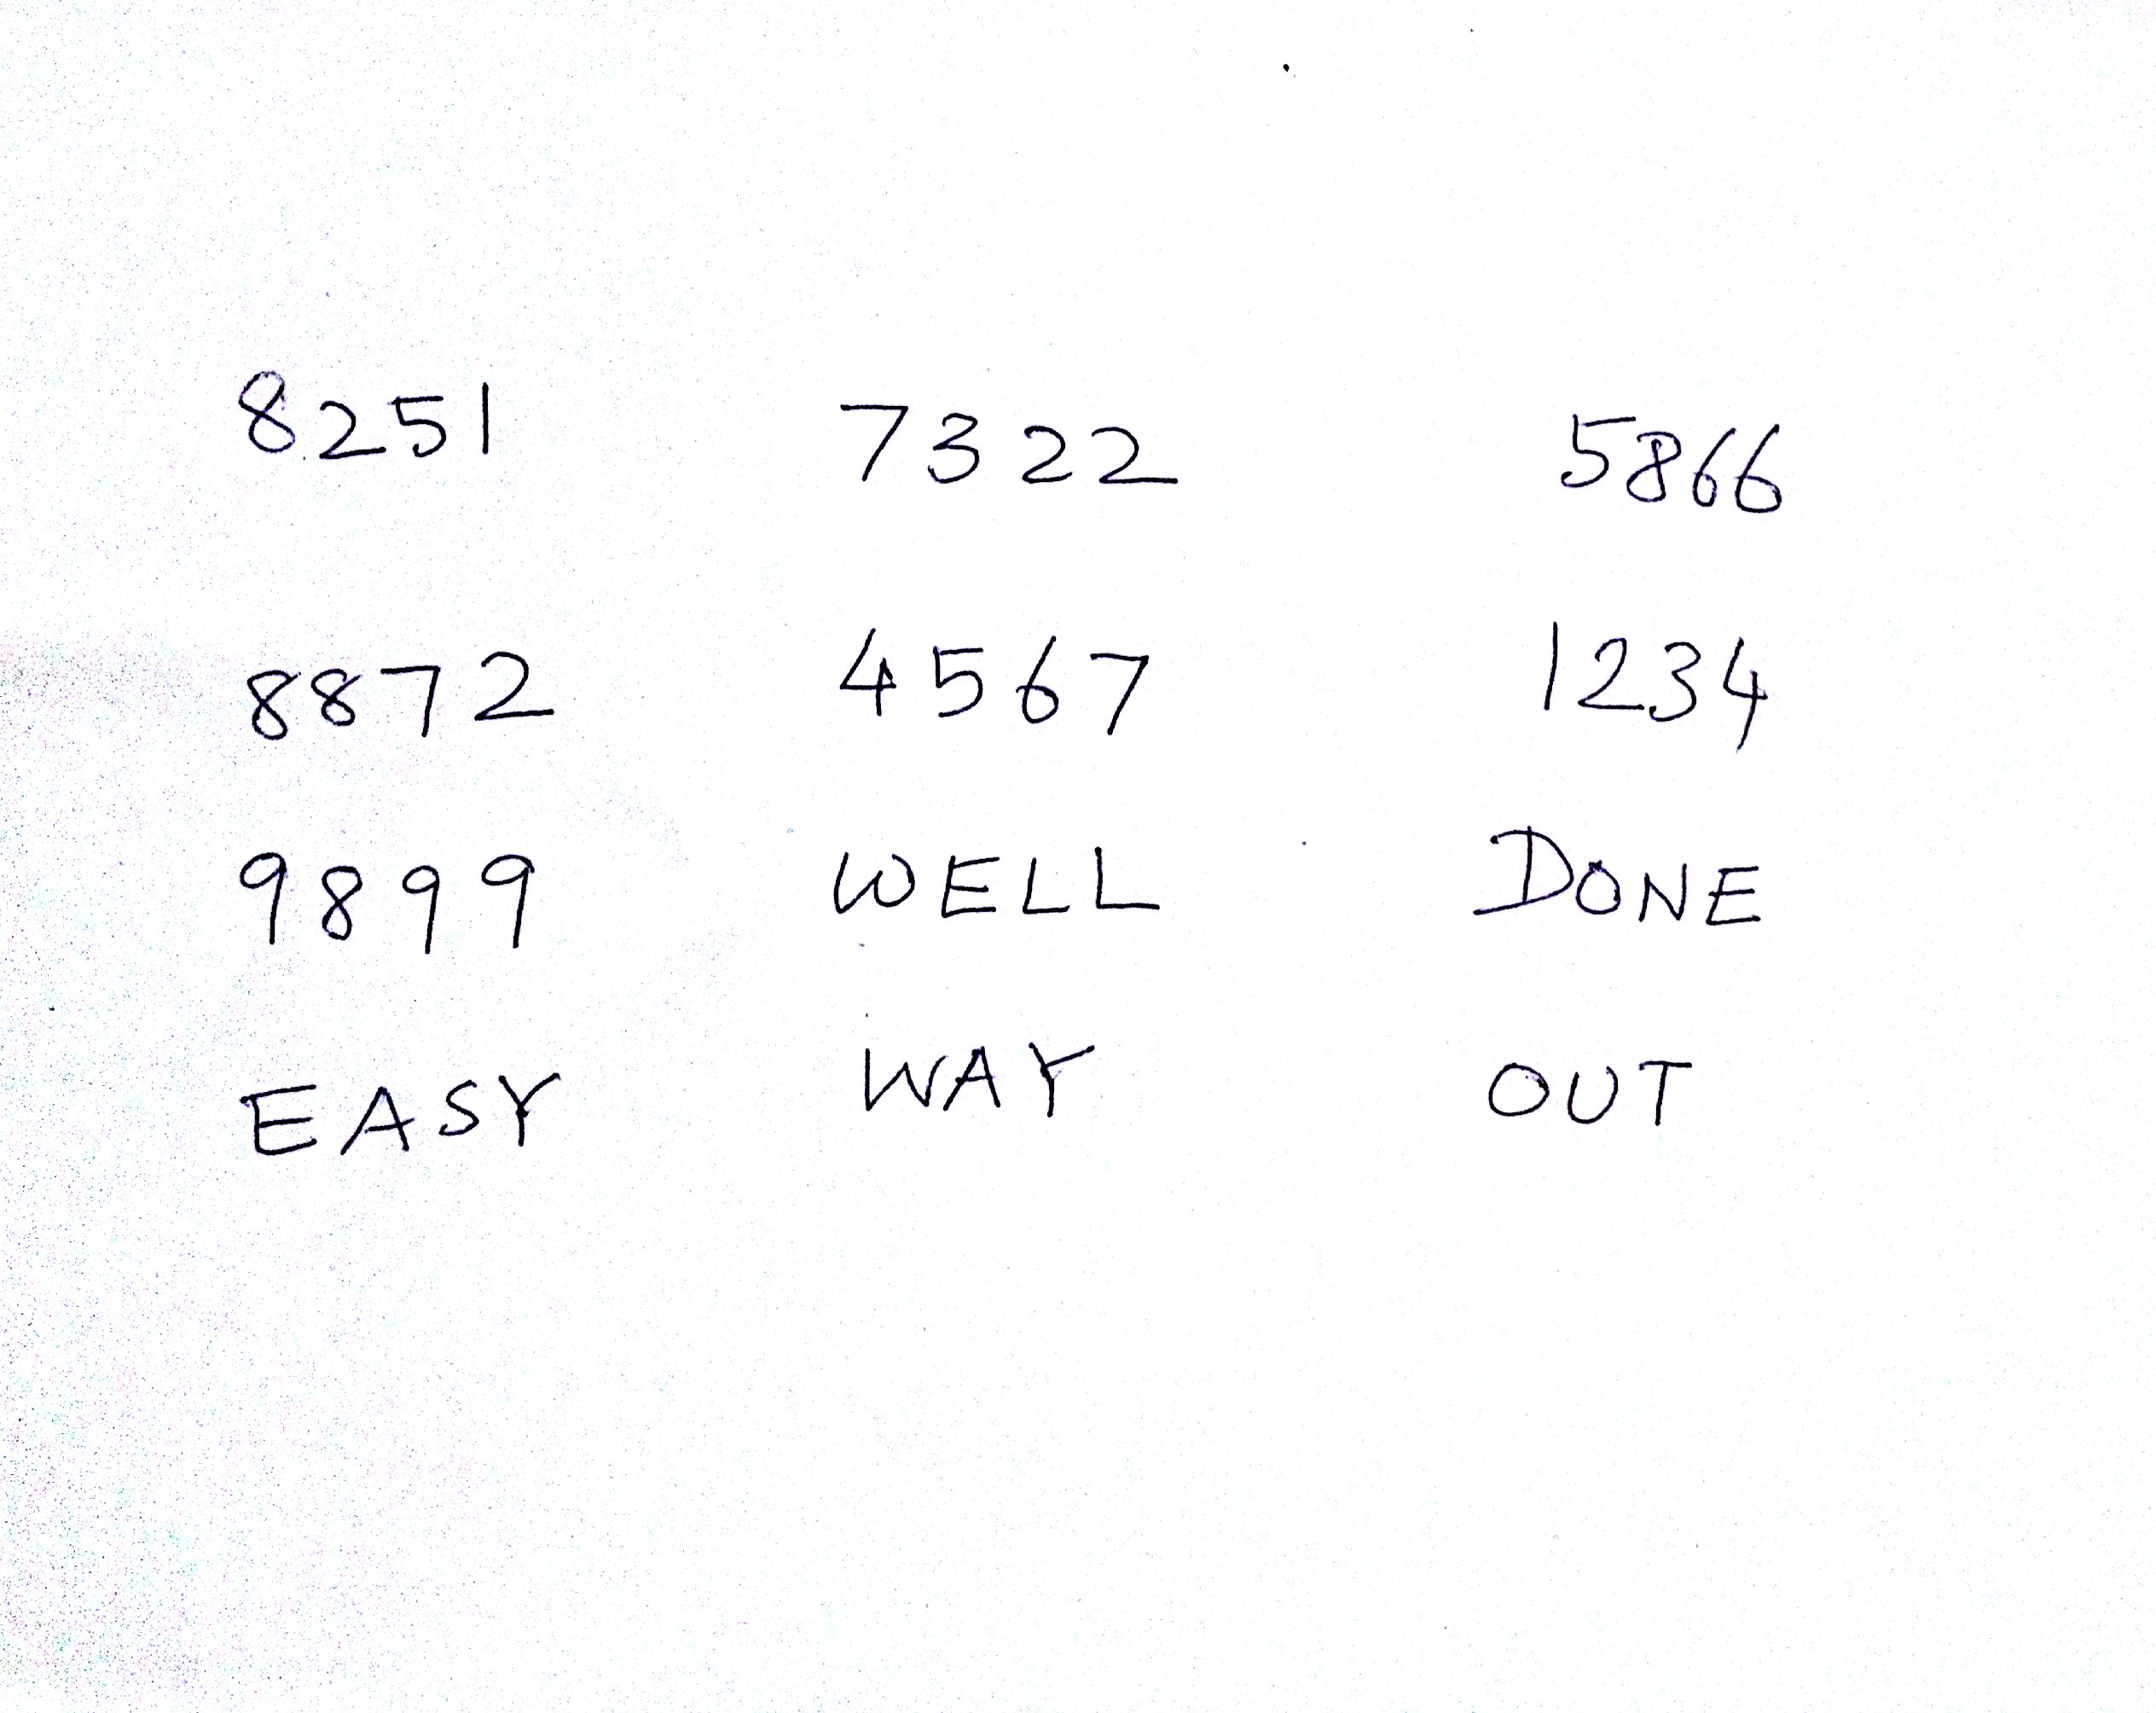 8251 7322 5866
8872 4567 1234
9899 WELL DONE
EASY WAY OUT